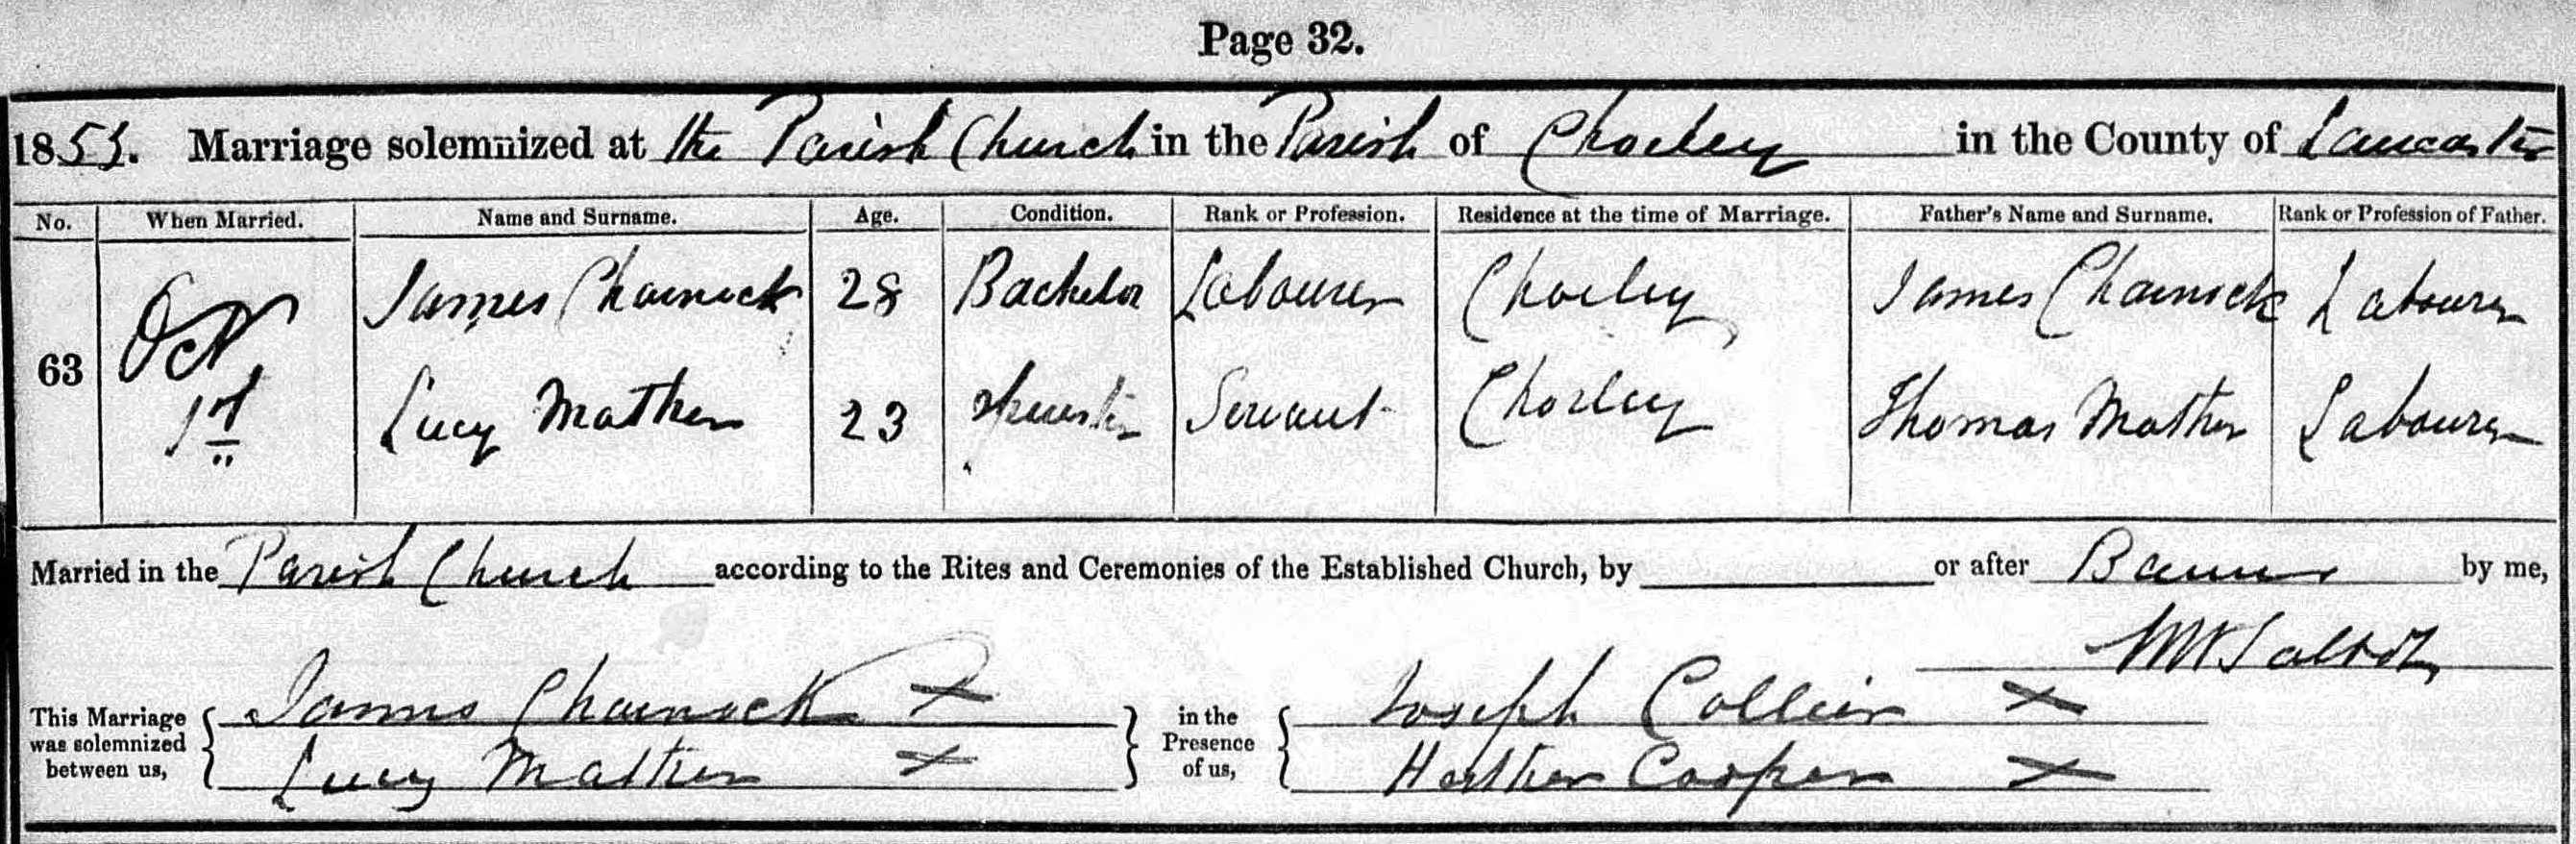 Page 32.
1853. Marriage solemnized at the Parish Church in the Parish of Chorley in the County of Lancaster
No. When Married. Name and Surname. Age. Condition. Rank or Profession. Residence at the time of Marriage. Father's Name and Surname. Rank or Profession of Father.
63 Oct 1st James Charnock 28 Bachelor Labourer Chorley James Charnock Labourer
Lucy Mather 23 Spinster Servant Chorley Thomas Mather Labourer
Married in the Parish Church according to the Rites and Ceremonies of the Established Church, by or after Banns by me,
Talbot
This Marriage was solemnized between us, James Charnock X in the Presence of us, Joseph Collier X
Lucy Mather X Cooper X